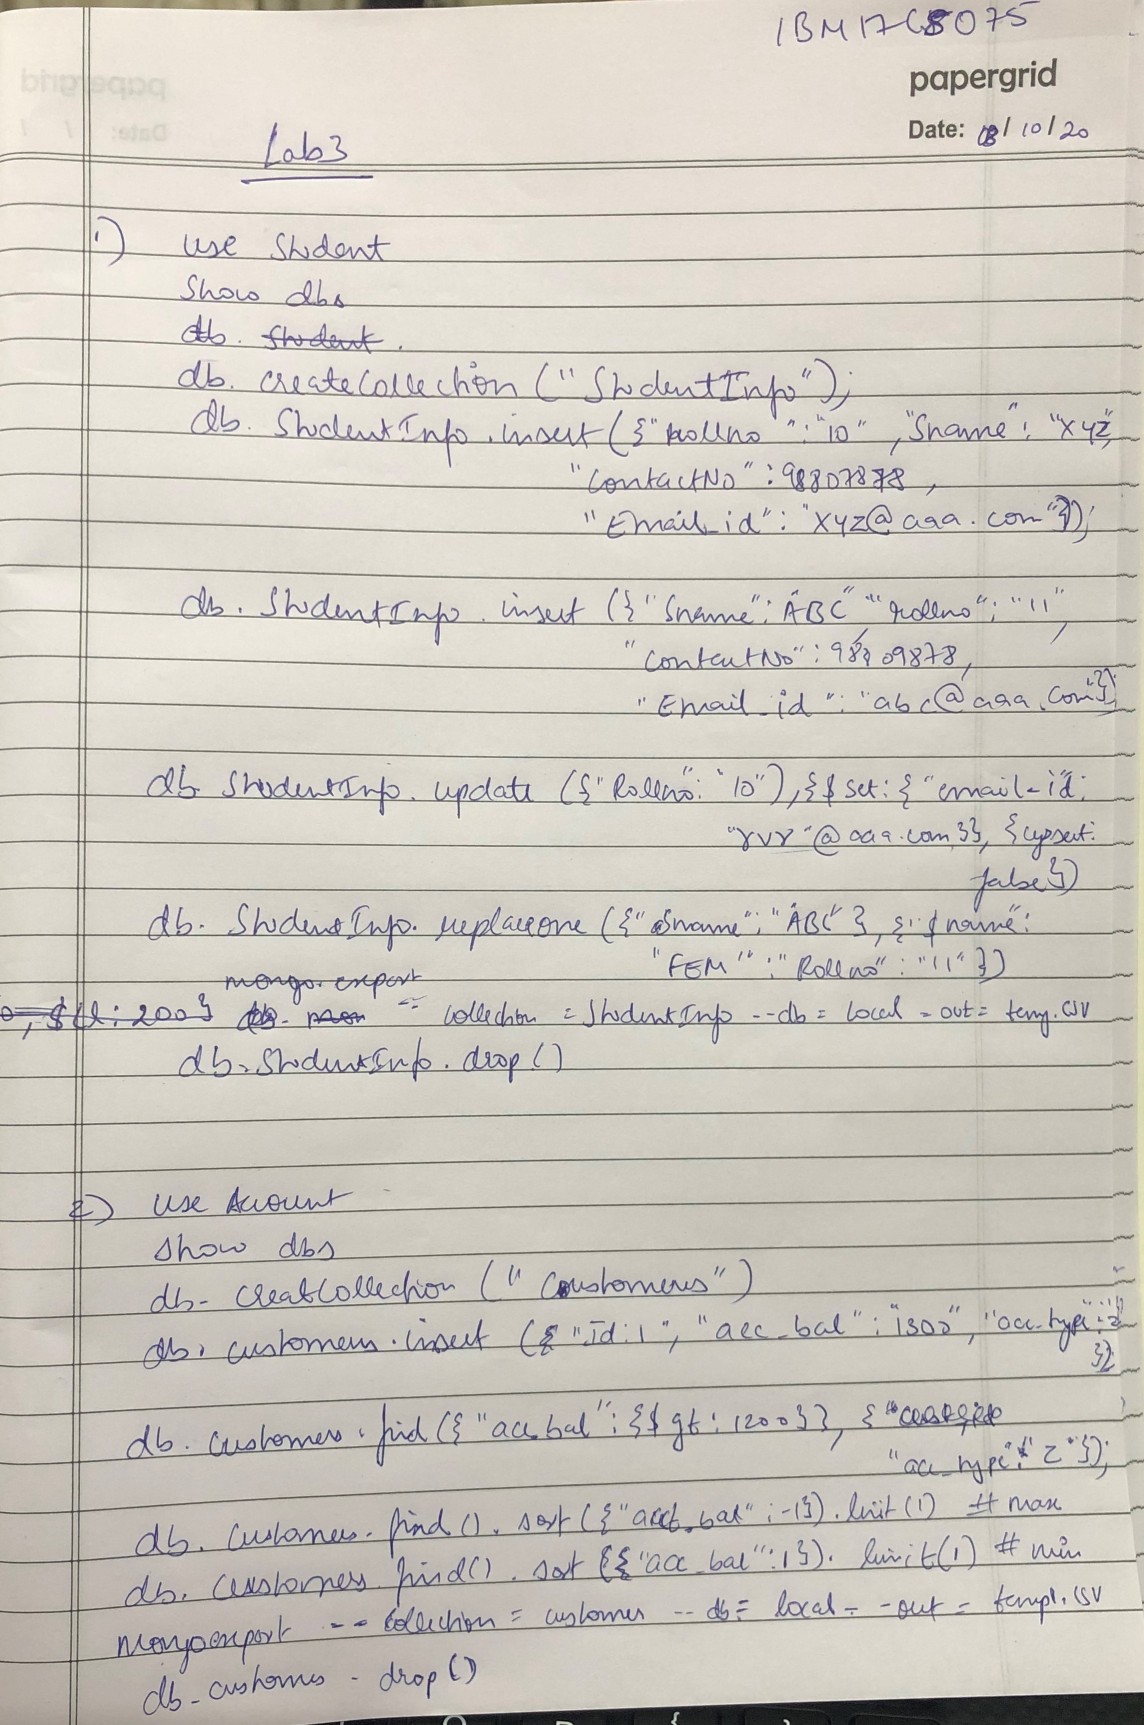 1BM17CS075
papergrid
Date: 13/10/20
Lab3
1) use Student
Show dbs
db. Student.
db. createCollection ("StudentInfo");
db. StudentInfo.insert ({"Rollno" : "10" , "Sname" : "XYZ",
"ContactNo" : 98807878 ,
"Email_id" : "XYZ@aaa.com"});
db. StudentInfo. insert ({"Sname": "ABC" "Rollno" : "11",
"ContactNo" : 98909878,
"Email_id" : "abc@aaa.com"})
db StudentInfo. update ({"Rollno": "10"}),{$set: {"email-id:
"rvr"@aaa.com}}, {upsert:
false})
db. StudentInfo. replaceone ({"Sname": "ABC" }, {"Sname":
"FEM" : "Rollno" : "11" })
mongo. export
, $ : 200} db. mon -- collection = StudentInfo --db = local - out = temp.csv
db. StudentInfo. drop()
2) use Account
show dbs
db- creatCollection (" Customers")
db. customers.insert ({ "Id:1", "acc_bal" : "1300", "acc_type": "2"
})
db. customers. find ({ "acc_bal" : {$gt: 1200}}, {"
"acc_type": "Z"});
db. Customers. find (). sort ({"acct_bal" : -1}). limit(1) # max
db. customers. find() . sort ({"acc_bal" : 1}). limit(1) # min
Mongoexport -- collection = customer -- db = local - -out = temp1. csv
db- customers - drop()